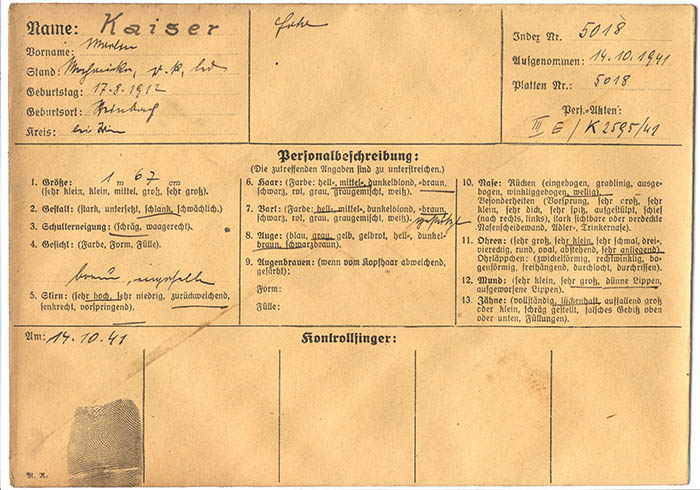 Name: Kaiser
Vorname:
Stand: Mechaniker, r. k., led
Geburtstag: 17.8.1912
Geburtsort:
Kreis: bei Wien
Index Nr. 5018
Aufgenommen: 14.10.1941
Platten Nr.: 5018
Pers.-Akten:
III E / K 2595/41
Personalbeschreibung:
(Die zutreffenden Angaben sind zu unterstreichen.)
1. Größe: 1 m 67 cm
(sehr klein, klein, mittel, groß, sehr groß).
2. Gestalt: (stark, untersetzt, schlank, schwächlich).
3. Schulterneigung: (schräg, waagerecht).
4. Gesicht: (Farbe, Form, Fülle).
5. Stirn: (sehr hoch, sehr niedrig, zurückweichend,
senkrecht, vorspringend).
6. Haar: (Farbe: hell-, mittel-, dunkelblond, -braun,
schwarz, rot, grau, graugemischt, weiß).
7. Bart: (Farbe: hell-, mittel-, dunkelblond, -braun,
schwarz, rot, grau, graugemischt, weiß). gestutzt
8. Auge: (blau, grau, gelb, gelbrot, hell-, dunkel-
braun, schwarzbraun).
9. Augenbrauen: (wenn vom Kopfhaar abweichend,
gefärbt):
Form:
Fülle:
10. Nase: Rücken (eingebogen, gradlinig, ausge-
bogen, winkliggebogen, wellig).
Besonderheiten (Vorsprung, sehr groß, sehr
klein, sehr dick, sehr spitz, aufgestülpt, schief
(nach rechts, links), stark sichtbare oder verdeckte
Nasenscheidewand, Adler-, Trinkernase).
11. Ohren: (sehr groß, sehr klein, sehr schmal, drei-
eckig, rund, oval, abstehend, sehr anliegend)
Ohrläppchen: (zwickelförmig, rechtwinklig, bo-
genförmig, freihängend, durchlocht, durchrissen).
12. Mund: (sehr klein, sehr groß, dünne Lippen,
aufgeworfene Lippen).
13. Zähne: (vollständig, lückenhaft, auffallend groß
oder klein, schräg gestellt, falsches Gebiß oben
oder unten, Füllungen).
Am: 14.10.41
Kontrollfinger:
M. R.